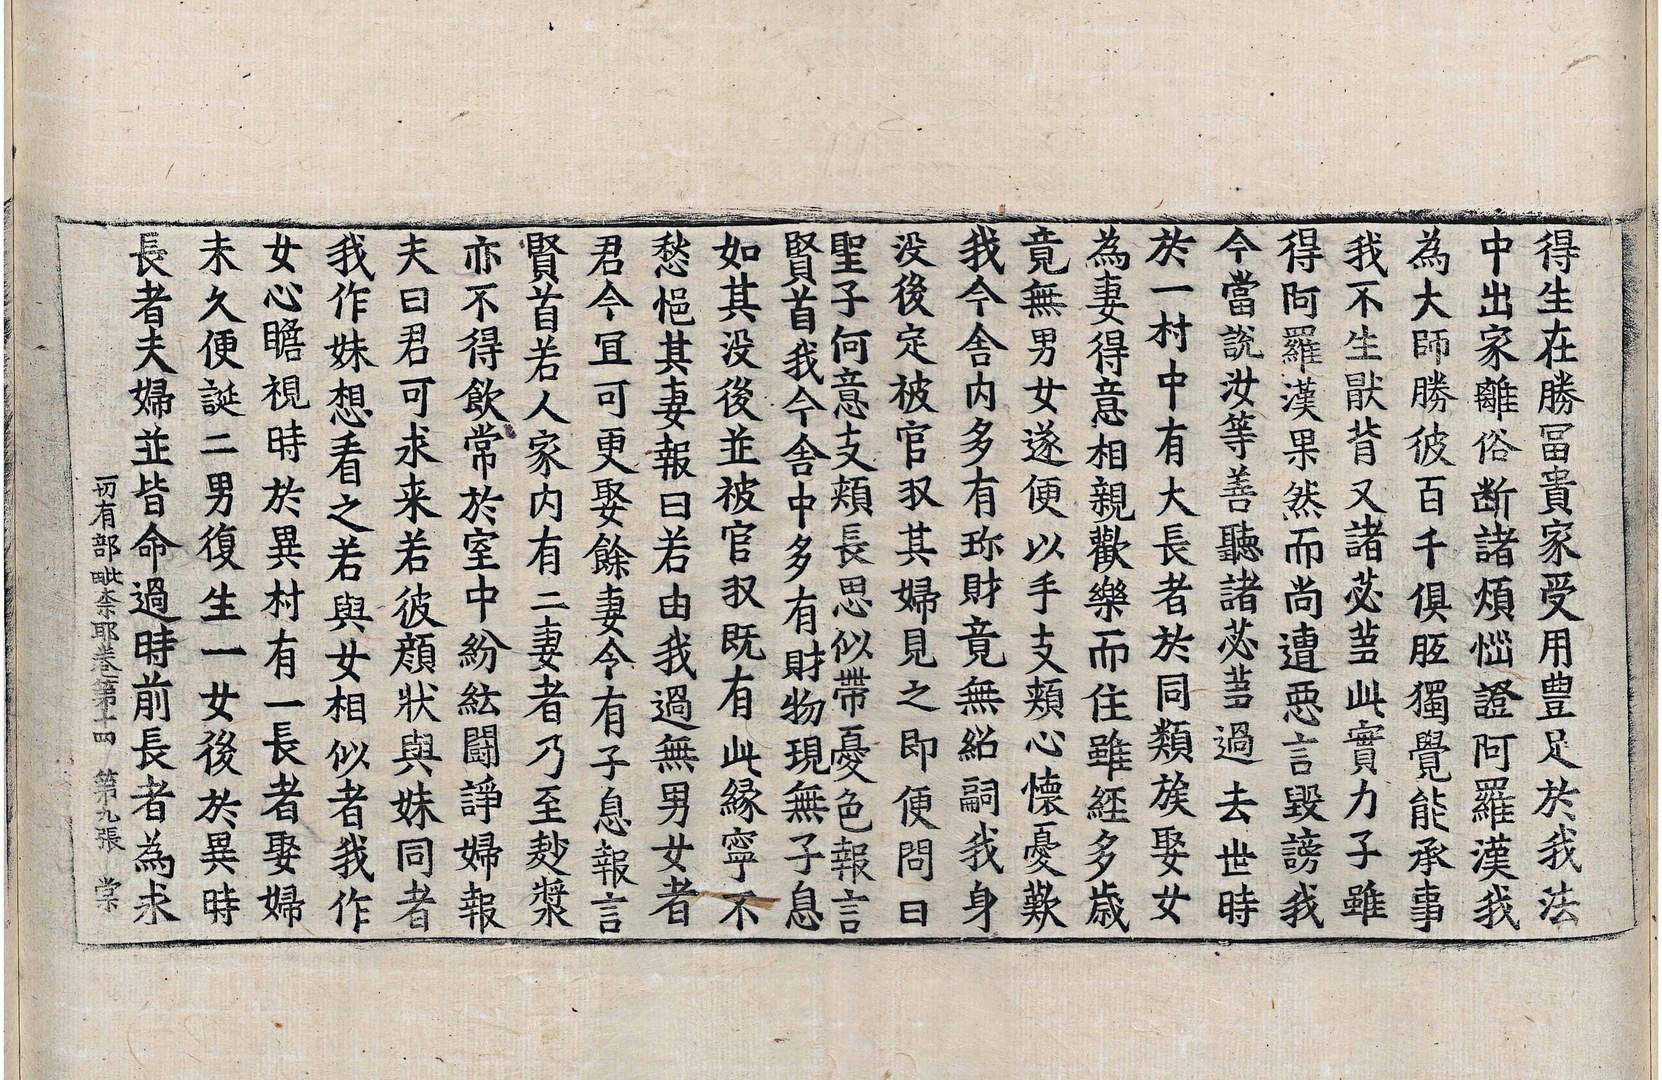 得生在勝冨貴家受用豊足於我法
中出家離俗断諸煩惱證阿羅漢我
為大師勝彼百千俱胝獨覺能承事
我不生猒背又諸苾芻此實力子雖
得阿羅漢果然而尚遭惡言毀謗我
今當說汝等善聽諸苾芻過去世時
於一村中有大長者於同類族娶女
為妻得意相親歡樂而住雖経多歳
竟無男女遂便以手支頰心懷憂歎
我今舍内多有珎財竟無紹嗣我身
没後定被官収其婦見之即便問曰
聖子何意支頰長思似帶憂色報言
賢首我今舍中多有財物現無子息
如其没後並被官収既有此縁寧不
愁悒其妻報曰若由我過無男女者
君今冝可更娶餘妻令有子息報言
賢首若人家内有二妻者乃至麨漿
亦不得飲常於室中紛紜鬪諍婦報
夫曰君可求来若彼顔狀與妹同者
我作妹想看之若與女相似者我作
女心瞻視時於異村有一長者娶婦
未久便誕二男復生一女後於異時
長者夫婦並皆命過時前長者為求
一切有部毗奈耶卷第十四 第九張 棠